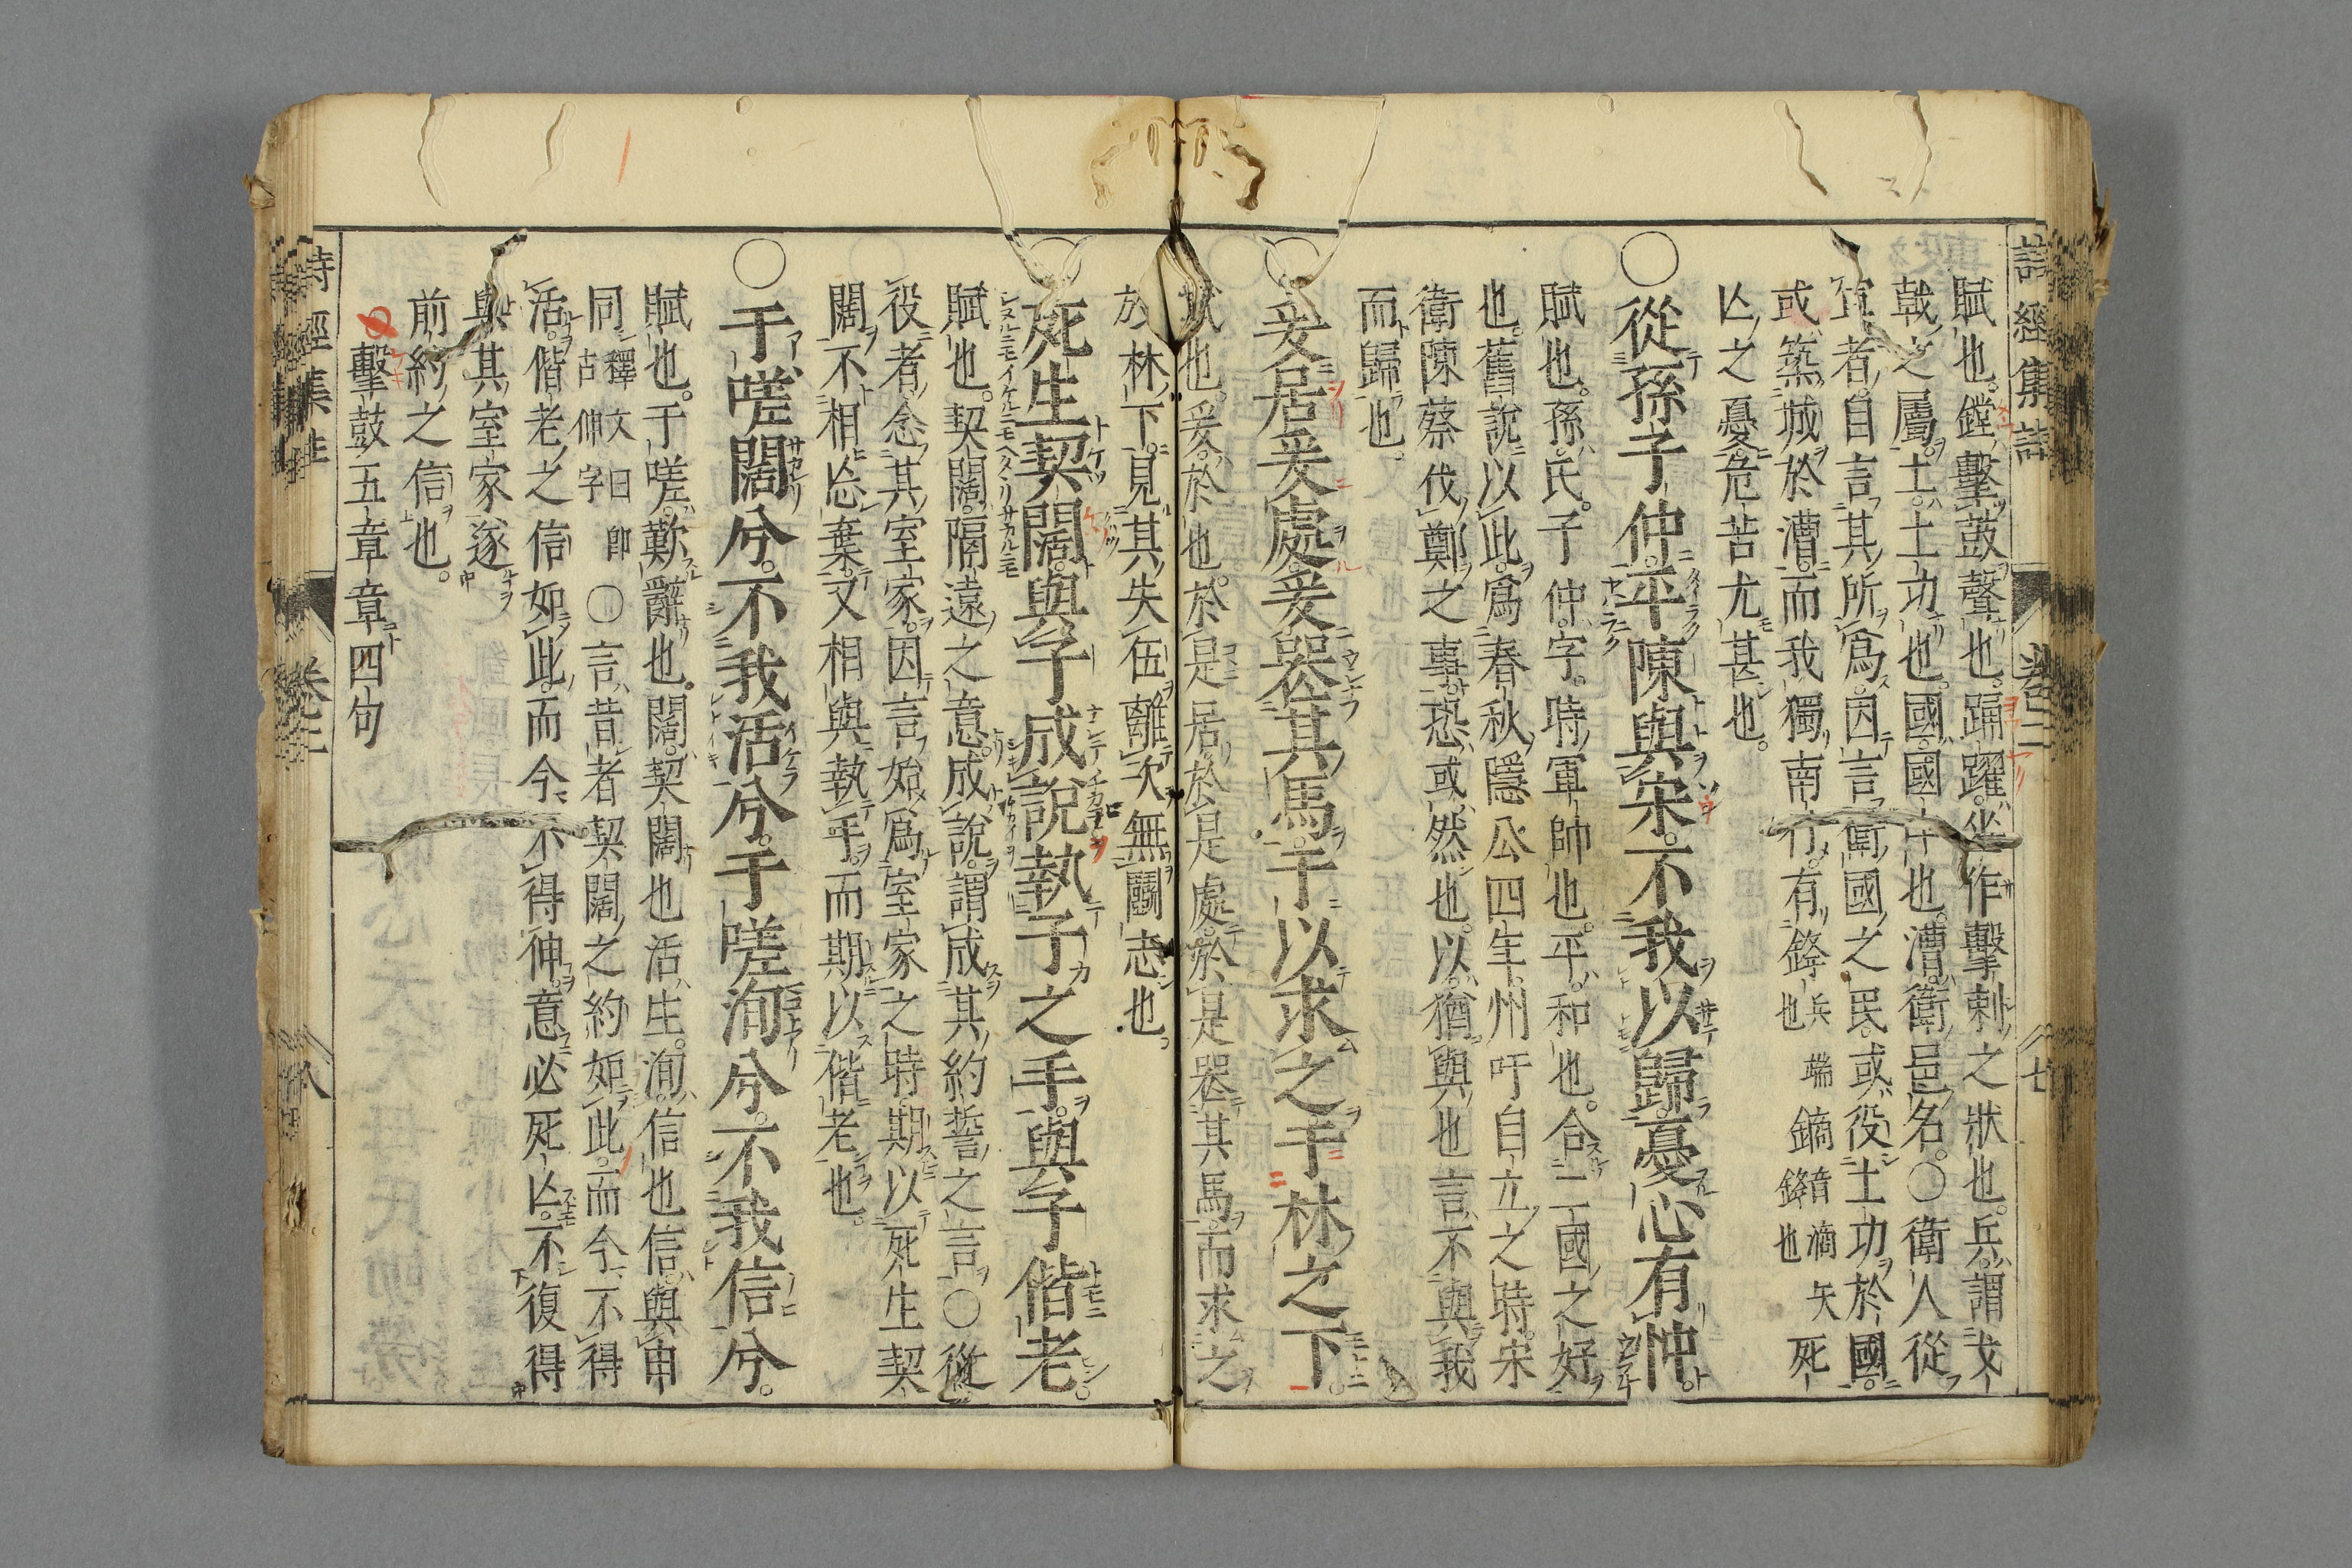 詩經集註 卷二 七
賦也。鏜、擊鼓聲也。踊躍、坐作擊刺之狀也。兵、謂戈
戟之屬。土、土功也。國、國中也。漕、衛邑名。○衛人從
軍者、自言其所爲。因言衛國之民、或役土功於國、
或築城於漕、而我獨南行、有鋒兵也端鏑音滴鋒矢也死
亾之憂、危苦尤甚也。
○從孫子仲。平陳與宋。不我以歸。憂心有忡。
賦也。孫、氏。子仲、字。時軍帥也。平、和也。合二國之好
也。舊說以此爲春秋隱公四年。州吁自立之時。宋
衛陳蔡伐鄭之事。恐或然也。以、猶與也。言不與我
而歸也。
○爰居爰處。爰喪其馬。于以求之。于林之下。
賦也。爰、於也。於是居、於是處、於是喪其馬。而求之
於林下。見其失伍離次、無鬭志也。
○死生契闊。與子成說。執子之手。與子偕老。
賦也。契闊、隔遠之意。成說、謂成其約誓之言。○從
役者念其室家。因言始爲室家之時。期以死生契
闊不相忘棄。又相與執手。而期以偕老也。
○于嗟闊兮。不我活兮。于嗟洵兮。不我信兮。
賦也。于嗟、歎辭也。闊、契闊也。活、生。洵、信也。信、與申
同釋文曰卽古伸字○言、昔者契闊之約如此。而今不得
活。偕老之信如此。而今不得伸。意必死亾。不復得
與其室家遂
前約之信也。
擊鼓五章章四句
詩經集註 卷二 八